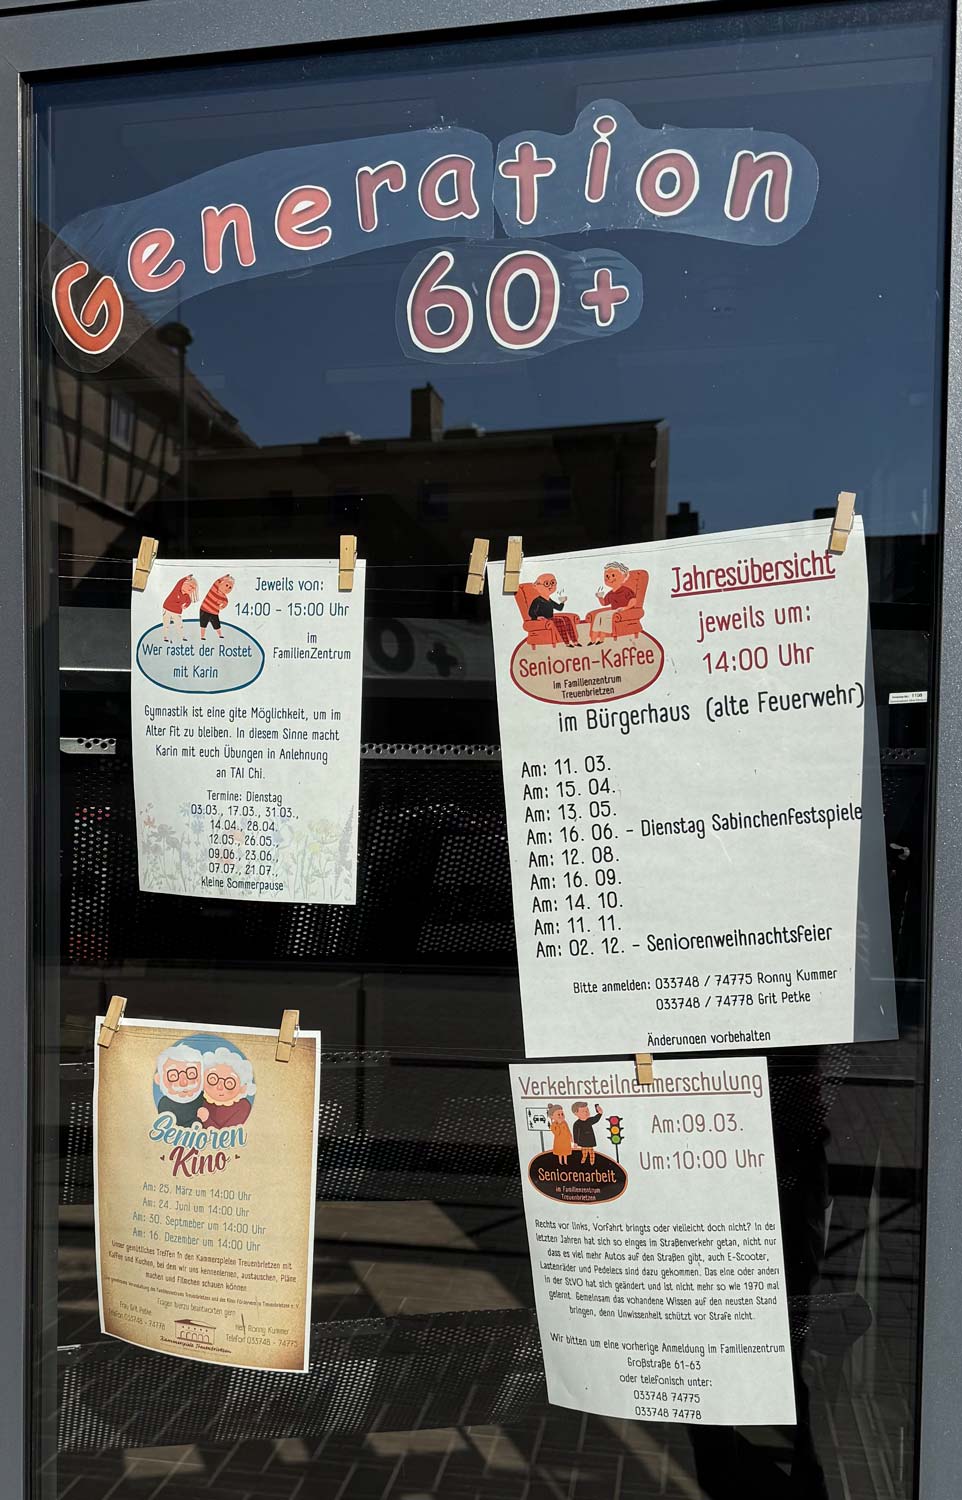 Generation
60+
Jeweils von:
14:00 - 15:00 Uhr
im
FamilienZentrum
Wer rastet der Rostet
mit Karin
Gymnastik ist eine gite Möglichkeit, um im
Alter fit zu bleiben. In diesem Sinne macht
Karin mit euch Übungen in Anlehnung
an TAI Chi.
Termine: Dienstag
03.03., 17.03., 31.03.,
14.04., 28.04.
12.05., 26.05.,
09.06., 23.06.,
07.07., 21.07.,
kleine Sommerpause
Jahresübersicht
jeweils um:
14:00 Uhr
Senioren-Kaffee
im Familienzentrum
Treuenbrietzen
im Bürgerhaus (alte Feuerwehr)
Am: 11. 03.
Am: 15. 04.
Am: 13. 05.
Am: 16. 06. - Dienstag Sabinchenfestspiele
Am: 12. 08.
Am: 16. 09.
Am: 14. 10.
Am: 11. 11.
Am: 02. 12. - Seniorenweihnachtsfeier
Bitte anmelden: 033748 / 74775 Ronny Kummer
033748 / 74778 Grit Petke
Änderungen vorbehalten
Senioren
Kino
Am: 25. März um 14:00 Uhr
Am: 24. Juni um 14:00 Uhr
Am: 30. Septmeber um 14:00 Uhr
Am: 16. Dezember um 14:00 Uhr
Unser gemütliches Treffen in den Kammerspielen Treuenbrietzen mit
Kaffee und Kuchen, bei dem wir uns kennenlernen, austauschen, Pläne
machen und Filmchen schauen können
Fragen hierzu beantworten gern
Frau Grit Petke
Telefon 033748 - 74778
Herr Ronny Kummer
Telefon 033748 - 74775
Kammerspiele Treuenbrietzen
Verkehrsteilnehmerschulung
Am:09.03.
Um:10:00 Uhr
Seniorenarbeit
im Familienzentrum
Treuenbrietzen
Rechts vor links, Vorfahrt bringts oder vielleicht doch nicht? In der
letzten Jahren hat sich so einges im Straßenverkehr getan, nicht nur
dass es viel mehr Autos auf den Straßen gibt, auch E-Scooter,
Lastenräder und Pedelecs sind dazu gekommen. Das eine oder andere
in der StVO hat sich geändert und ist nicht mehr so wie 1970 mal
gelernt. Gemeinsam das vohandene Wissen auf den neusten Stand
bringen, denn Unwissenheit schützt vor Strafe nicht.
Wir bitten um eine vorherige Anmeldung im Familienzentrum
Großstraße 61-63
oder telefonisch unter:
033748 74775
033748 74778